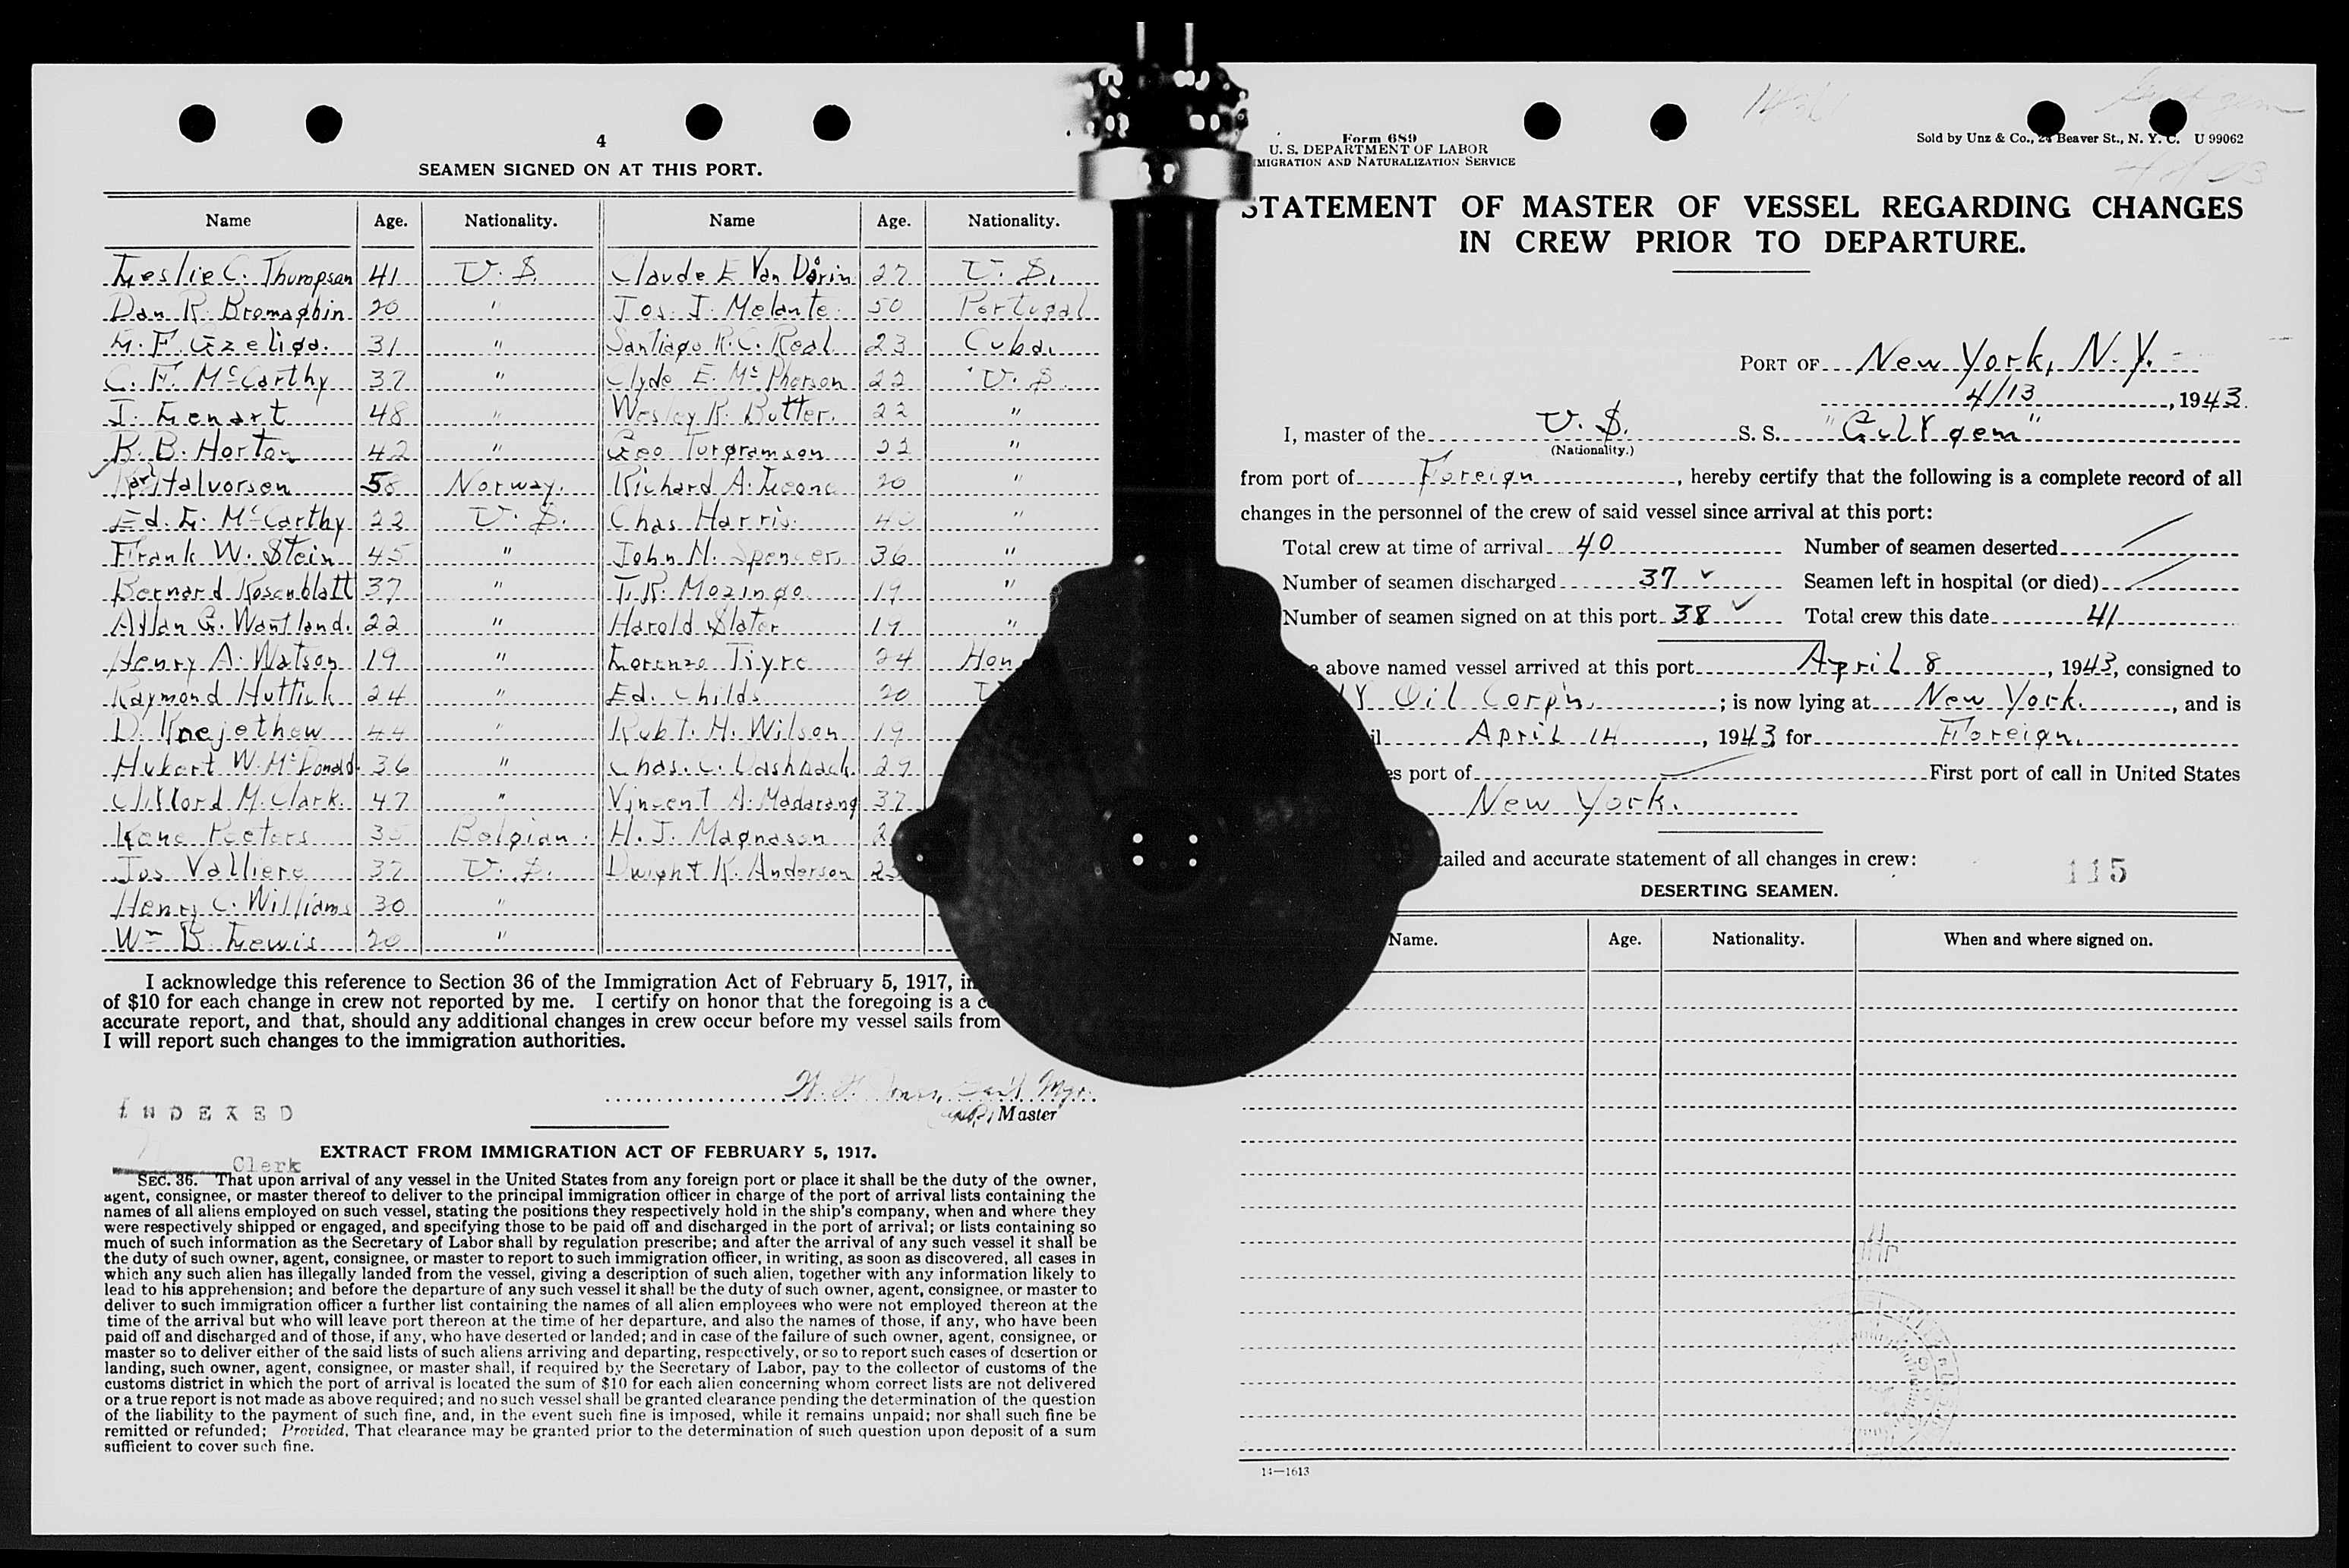 4
SEAMEN SIGNED ON AT THIS PORT.
Name Age. Nationality. Name Age. Nationality.
Leslie C. Thompson 41 U.S. Claude E Van Dorin 27 U.S.
Dan R. Bromaghin 20 " Jos. J. Melante 50 Portugal
L. F. Gzeliga. 31 " Santiago R.C. Real 23 Cuba.
C. F. McCarthy 37 " Clyde E. McPherson 22 U.S.
J. Lenart 48 " Wesley R. Butler. 22 "
R. B. Horton 42 " Geo Torgramson 22 "
Halvorsen 58 Norway. Richard A. Leone 20 "
Ed. L. McCarthy 22 U.S. Chas Harris. 40 "
Frank W. Stein 45 " John H. Spencer 36 "
Bernard Rosenblatt 37 " T. R. Mozingo 19 "
Allan G. Wantland. 22 " Harold Slater 19 "
Henry A. Watson 19 " Lorenzo Tiyre 24 Hon
Raymond Huttick 24 " Ed. Childs 20
D. Knejethow 44 " Robt. H. Wilson 19
Hubert W. McDonald 36 " Chas. C. Dashback 27
Clifford M. Clark. 47 " Vincent A. Madarang 37
Rene Peeters 35 Belgian. H. J. Magnason
Jos Valliere 37 U.S. Dwight K. Anderson 23
Henry C. Williams 30 "
Wm B. Lewis 20 "
I acknowledge this reference to Section 36 of the Immigration Act of February 5, 1917, in
of $10 for each change in crew not reported by me. I certify on honor that the foregoing is a
accurate report, and that, should any additional changes in crew occur before my vessel sails from
I will report such changes to the immigration authorities.
Master
INDEXED
Clerk
EXTRACT FROM IMMIGRATION ACT OF FEBRUARY 5, 1917.
SEC. 36. That upon arrival of any vessel in the United States from any foreign port or place it shall be the duty of the owner,
agent, consignee, or master thereof to deliver to the principal immigration officer in charge of the port of arrival lists containing the
names of all aliens employed on such vessel, stating the positions they respectively hold in the ship's company, when and where they
were respectively shipped or engaged, and specifying those to be paid off and discharged in the port of arrival; or lists containing so
much of such information as the Secretary of Labor shall by regulation prescribe; and after the arrival of any such vessel it shall be
the duty of such owner, agent, consignee, or master to report to such immigration officer, in writing, as soon as discovered, all cases in
which any such alien has illegally landed from the vessel, giving a description of such alien, together with any information likely to
lead to his apprehension; and before the departure of any such vessel it shall be the duty of such owner, agent, consignee, or master to
deliver to such immigration officer a further list containing the names of all alien employees who were not employed thereon at the
time of the arrival but who will leave port thereon at the time of her departure, and also the names of those, if any, who have been
paid off and discharged and of those, if any, who have deserted or landed; and in case of the failure of such owner, agent, consignee, or
master so to deliver either of the said lists of such aliens arriving and departing, respectively, or so to report such cases of desertion or
landing, such owner, agent, consignee, or master shall, if required by the Secretary of Labor, pay to the collector of customs of the
customs district in which the port of arrival is located the sum of $10 for each alien concerning whom correct lists are not delivered
or a true report is not made as above required; and no such vessel shall be granted clearance pending the determination of the question
of the liability to the payment of such fine, and, in the event such fine is imposed, while it remains unpaid; nor shall such fine be
remitted or refunded; Provided, That clearance may be granted prior to the determination of such question upon deposit of a sum
sufficient to cover such fine.
Form 689
U. S. DEPARTMENT OF LABOR
MIGRATION AND NATURALIZATION SERVICE
Sold by Unz & Co., 24 Beaver St., N. Y. C. U 99062
STATEMENT OF MASTER OF VESSEL REGARDING CHANGES
IN CREW PRIOR TO DEPARTURE.
PORT OF New York, N.Y.
4/13, 1943.
I, master of the U.S. S. S. "Gulfgem"
(Nationality.)
from port of Foreign, hereby certify that the following is a complete record of all
changes in the personnel of the crew of said vessel since arrival at this port:
Total crew at time of arrival 40 Number of seamen deserted
Number of seamen discharged 37 Seamen left in hospital (or died)
Number of seamen signed on at this port 38 Total crew this date 41
above named vessel arrived at this port April 8, 1943, consigned to
Oil Corp'n.; is now lying at New York., and is
April 14, 1943 for Foreign.
port of First port of call in United States
New York.
tailed and accurate statement of all changes in crew:
115
DESERTING SEAMEN.
Name. Age. Nationality. When and where signed on.
14—1613